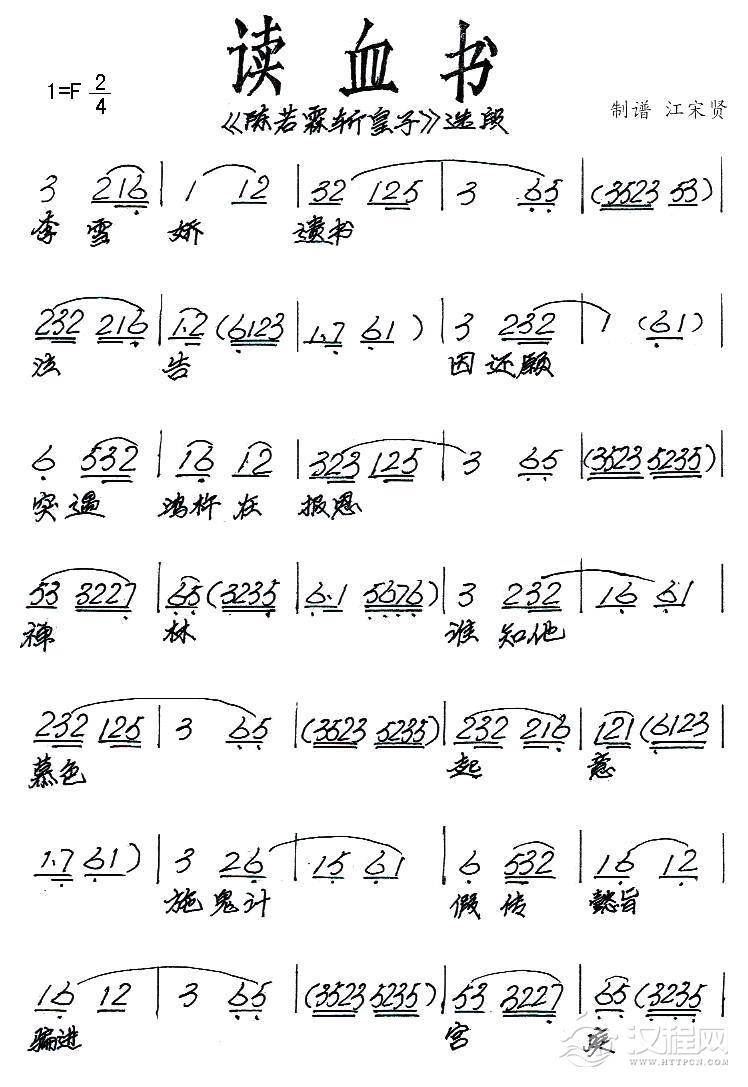 读血书
1=F 2/4
《陈若霖斩皇子》选段
制谱 江宋贤
3 216 | 1 12 | 32 125 | 3 65 | (3523 53) |
李雪娇 遗书
232 216 | 1·2 (6123 | 1·7 61) | 3 232 | 1 (61) |
泣告 因还愿
6 532 | 16 12 | 323 125 | 3 65 | (3523 5235) |
突遇 鸿杵在报恩
53 3227 | 65 (3235 | 6·1 5676) | 3 232 | 16 61 |
禅林 谁知他
232 125 | 3 65 | (3523 5235) | 232 216 | 121 (6123 |
慕色 起意
1·7 61) | 3 26 | 15 61 | 6 532 | 16 12 |
施鬼计 假传懿旨
16 12 | 3 65 | (3523 5235) | 53 3227 | 65 (3523 |
骗进 宫
汉程网
WWW.HTTPCN.COM